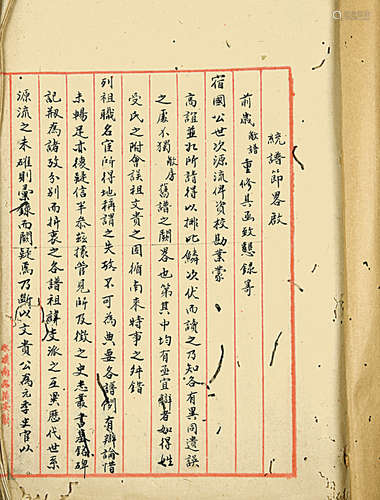 統譜節畧啟
前歲敝譜重修具函致懇錄寄
宿國公世次源流俾資校勘業蒙
高誼並扎所請得以挨此鱗次伏而讀之乃知各有異同遺誤
之處不獨敝房舊譜之闕畧也第其中均有亟宜辯者如得姓
受氏之附會誤祖文貴之因循南來時事之舛錯
列祖職名宦所得地稱謂之失攷不可為典要各譜例有辯論惜
未暢足亦復疑信半叅茲據管見所及徵之史志叢書墓銘碑
記報為諸攷分别而折衷之各譜祖辯支派之互異歷代世系
源流之未確則彙錄而闕疑焉乃斷以文貴公為元季生官以